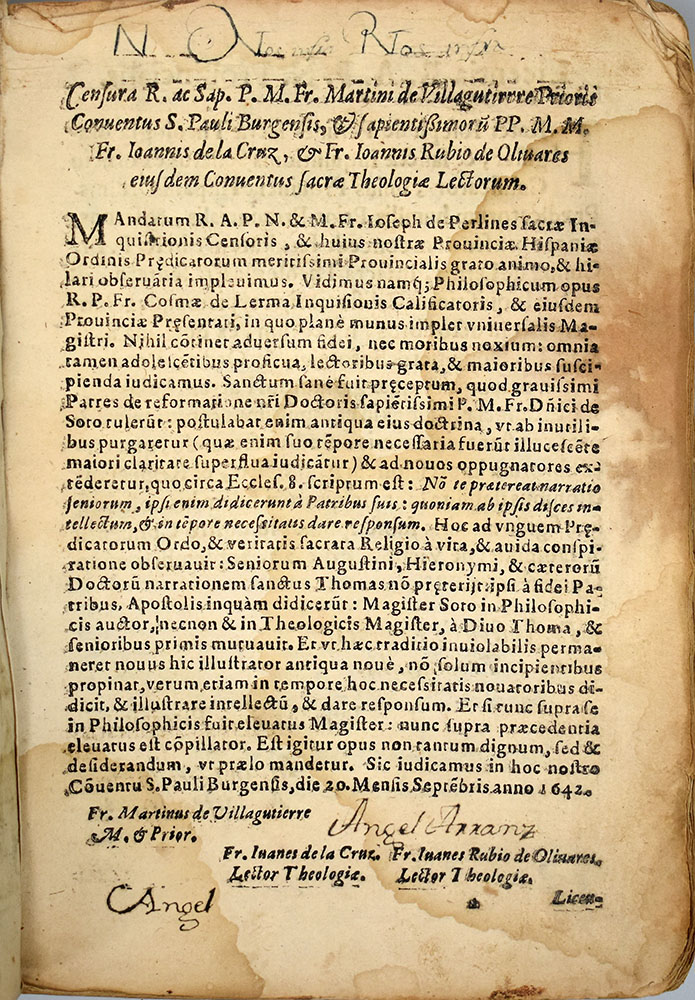 N. 
Censura R. ac Sap. P. M. Fr. Martini de Villagutierre Prioris
Conuentus S. Pauli Burgensis, & sapientißimorũ PP. M. M.
Fr. Ioannis de la Cruz, & Fr. Ioannis Rubio de Oliuares
eiusdem Conuentus sacræ Theologiæ Lectorum.
MAndatum R. A. P. N. & M. Fr. Ioseph de Perlines sacræ In-
quisitionis Censoris, & huius nostræ Prouinciæ Hispaniæ
Ordinis Prędicatorum meritissimi Prouincialis grato animo, & hi-
lari obseruãtia impleuimus. Vidimus namq; Philosophicum opus
R. P. Fr. Cosmæ de Lerma Inquisitionis Calificatoris, & eiusdem
Prouinciæ Pręsentati, in quo planè munus implet vniuersalis Ma-
gistri. Nihil cõtinet aduersum fidei, nec moribus noxium: omnia
tamen adolescẽtibus proficua, lectoribus grata, & maioribus susci-
pienda iudicamus. Sanctum sanè fuit pręceptum, quod grauissimi
Patres de reformatione nr̃i Doctoris sapiẽtissimi P. M. Fr. Dñici de
Soto tulerũt: postulabat enim antiqua eius doctrina, vt ab inutili-
bus purgaretur (quæ enim suo tẽpore necessaria fuerũt illucescẽte
maiori claritate superflua iudicãtur) & ad nouos oppugnatores ex-
tẽderetur, quo circa Eccles. 8. scriptum est: Nõ te prætereat narratio
seniorum, ipsi enim didicerunt à Patribus suis: quoniam ab ipsis disces in-
tellectum, & in tẽpore necessitatis dare responsum. Hoc ad vnguem Prę-
dicatorum Ordo, & veritatis sacrata Religio à vita, & auida conspi-
ratione obseruauit: Seniorum Augustini, Hieronymi, & cæterorũ
Doctorũ narrationem sanctus Thomas nõ pręterijt: ipsi à fidei Pa-
tribus, Apostolis inquàm didicerũt: Magister Soto in Philosophi-
cis auctor, necnon & in Theologicis Magister, à Diuo Thoma, &
senioribus primis mutuauit. Et vt hæc traditio inuiolabilis perma-
neret nouus hic illustrator antiqua nouè, nõ solum incipientibus
propinat, verum etiam in tempore hoc necessitatis nouatoribus di-
dicit, & illustrare intellectũ, & dare responsum. Et si tunc supra se
in Philosophicis fuit eleuatus Magister: nunc supra præcedentia
eleuatus est cõpillator. Est igitur opus non tantum dignum, sed &
desiderandum, vt prælo mandetur. Sic iudicamus in hoc nostro
Cõuentu S. Pauli Burgensis, die 20. Mensis Septẽbris anno 1642.
Fr. Martinus de Villagutierre
M. & Prior.
Angel Arranz
Fr. Iuanes de la Cruz. Fr. Iuanes Rubio de Oliuares.
Lector Theologiæ. Lector Theologiæ.
Angel
Licen-